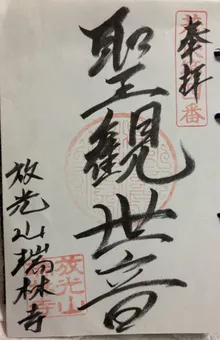 奉拝
聖觀世音
放光山瑞林寺
放光山